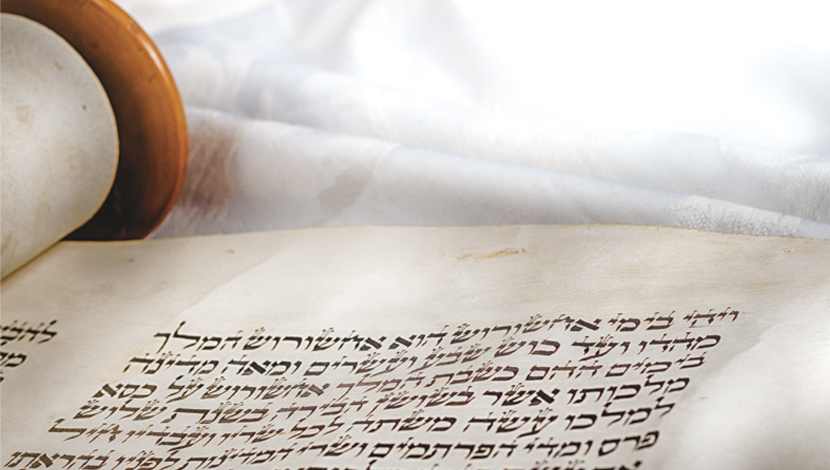 ויהי בימי אחשורוש הוא אחשורוש המלך
מהדו ועד כוש שבע ועשרים ומאה מדינה
בימים ההם כשבת המלך אחשורוש על כסא
מלכותו אשר בשושן הבירה בשנת שלוש
למלכו עשה משתה לכל שריו ועבדיו חיל
פרס ומדי הפרתמים ושרי המדינות לפניו בהראתו